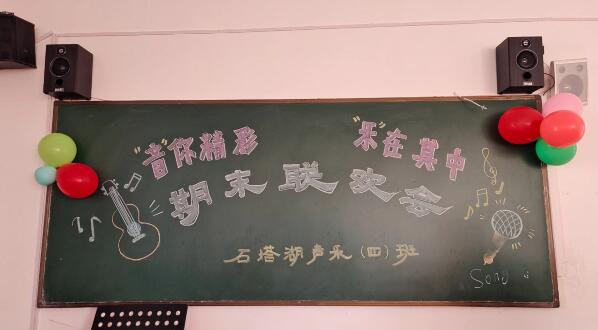 "音"你精彩 "乐"在其中
期末联欢会
石塔湖声乐(四)班
Song